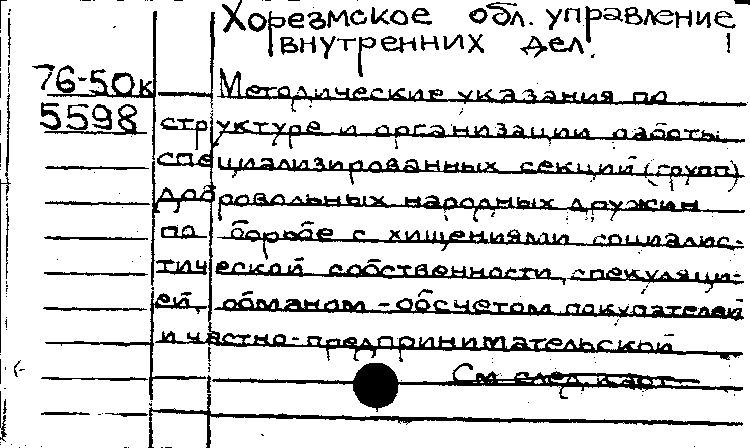 Хорезмское обл. управление
внутренних дел.
76-50к Методические указания по
5598 структуре и организации работы
специализированных секций (групп)
добровольных народных дружин
по борьбе с хищениями социалис-
тической собственности, спекуляци-
ей, обманом-обсчетом покупателей
и частно-предпринимательской
См след. карт.